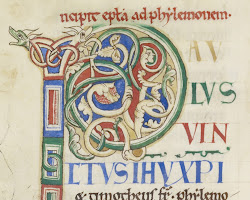 ncipit epła ad phylemonem.
PAU
LVS
VIN
CTUSIHUXPI
& timotheus fr̄ phylemo